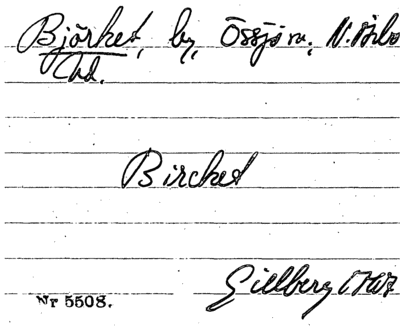 Björket, by, Össjö sn, N. Åsbo
hd.
Bircket
Gillberg
Nr 5508.